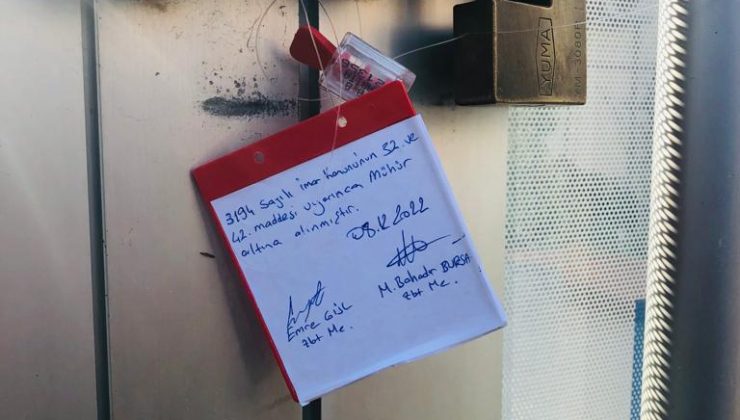 YUMA
3194 Sayılı imar Kanununun 32. ve
42. maddesi uyarınca Mühür
altına alınmıştır.
08.12.2022
M. Bahadır BURSA
Zbt Me.
Emre GÜL
Zbt Me.